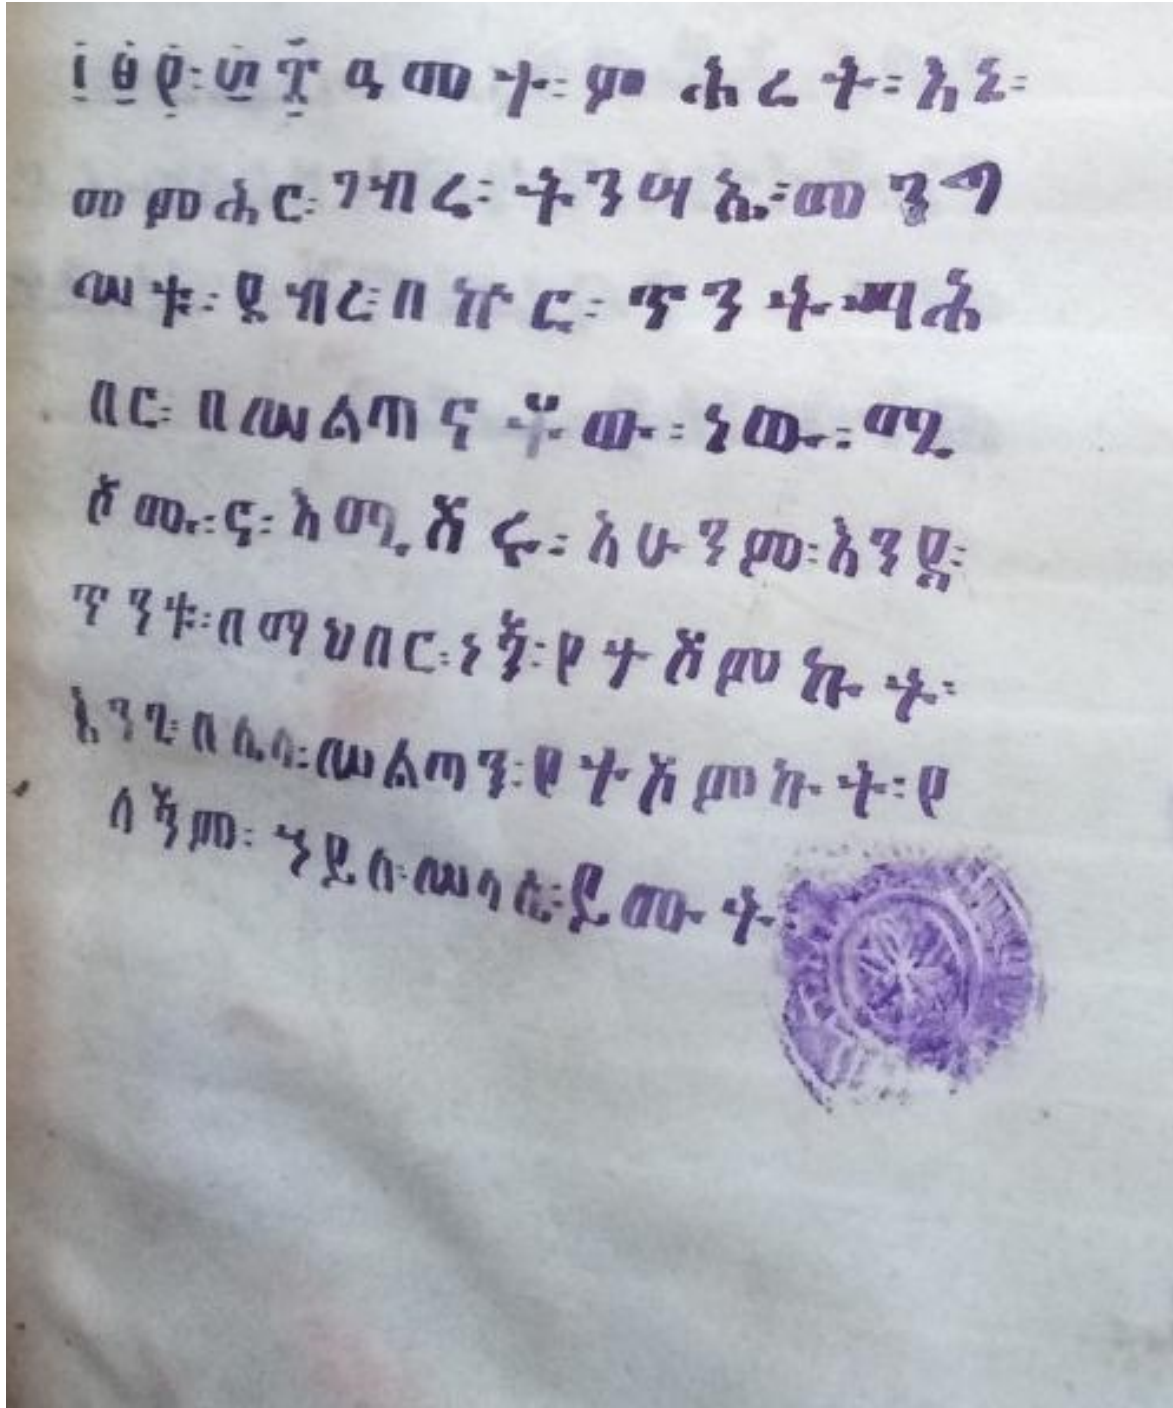 ፲፱፻፹፯ ዓመት፡ ምሕረት፡ እኔ፡
መምሕር፡ ገብሬ፡ ትንሣኤ፡ መንግ
ሥቱ፡ ደብረ፡ በኹር፡ ጥንት ማሕ
በር፡ በሥልጣናቸው፡ ነው፡ ሚ
ሾሙ፡ና፡ እሚሽሩ፡ አሁንም፡ እንደ፡
ጥንቱ፡ በማህበር፡ ነኝ፡ የተሾምኩት፡
እንጂ፡ በሌላ፡ ሥልጣን፡ የተሾምኩት፡ የ
ለኝም፡ ኃይለ፡ ሥላሴ፡ ይሙት